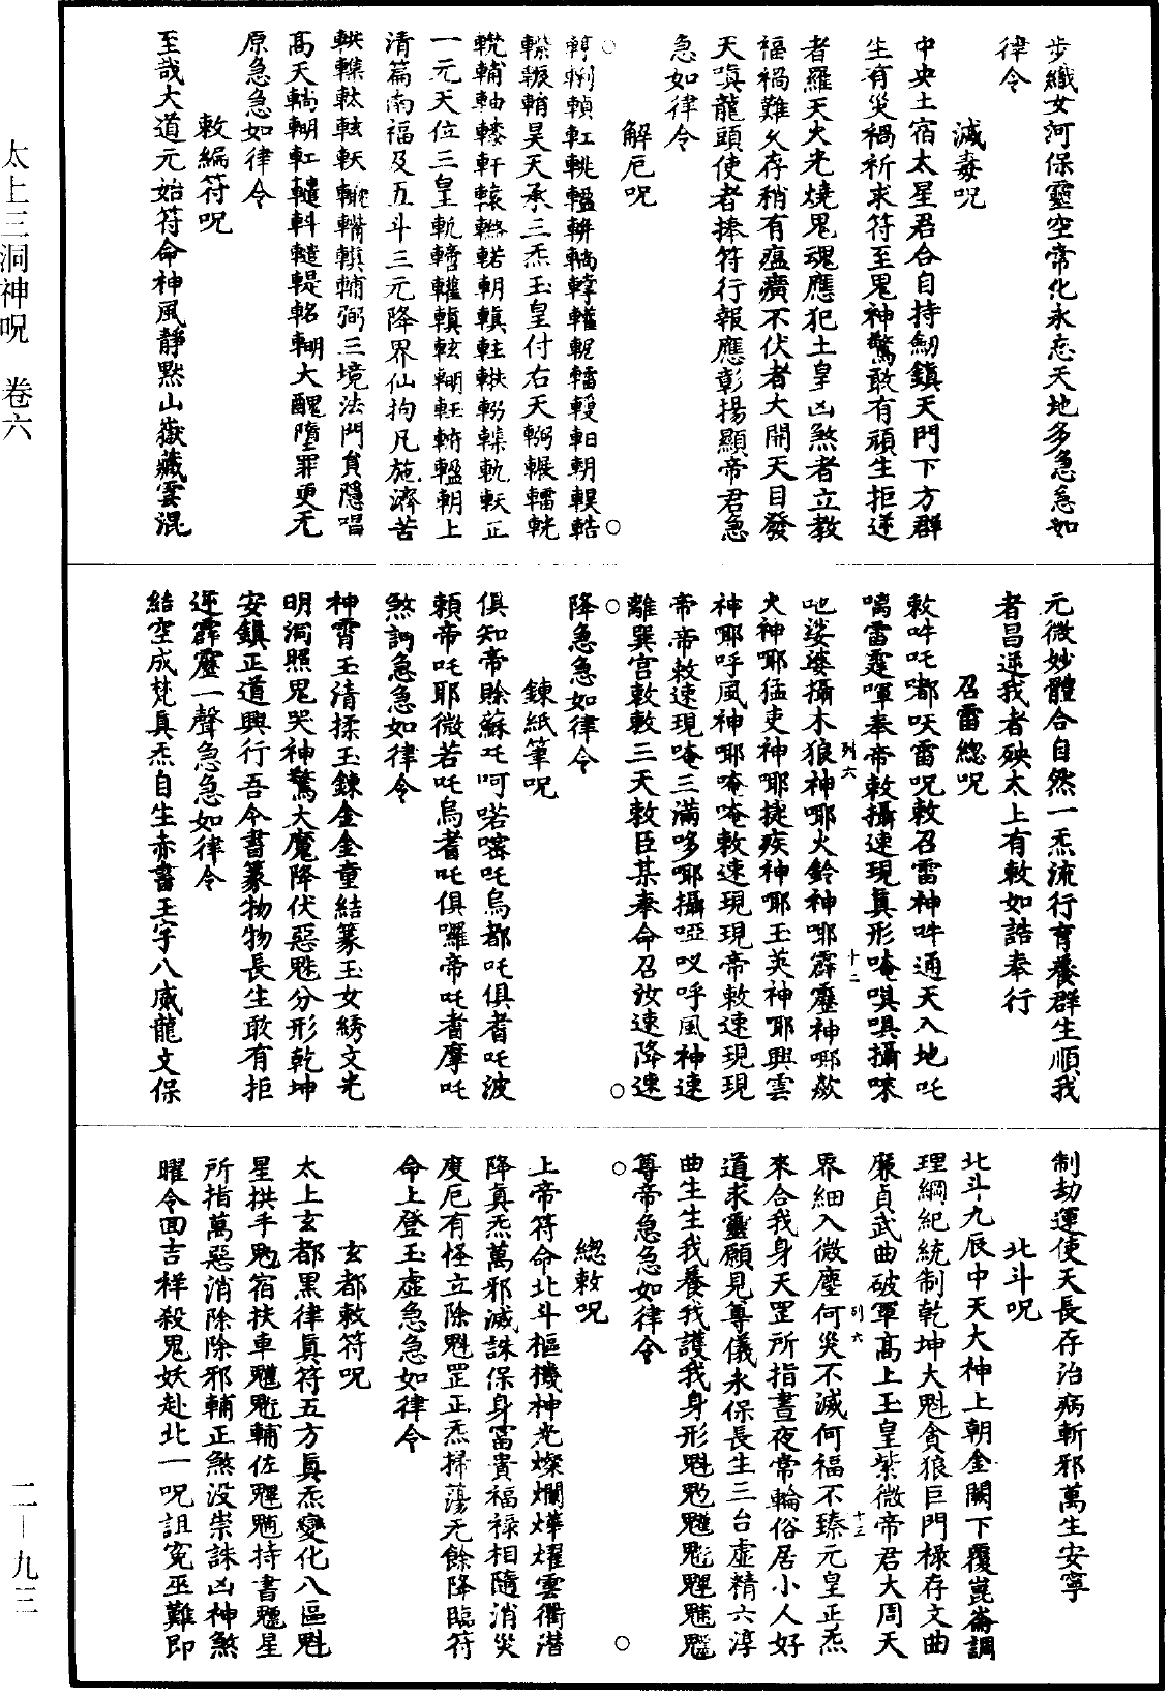 太上三洞神呪　卷六
二—九三
步纖女河保靈空常化永忘天地多急急如
律令
滅毒呪
中央土宿太星君合自持劒鎮天門下方群
生有災禍祈求符至鬼神驚敢有頑生拒逆
者羅天火光燒鬼魂應犯土皇凶煞者立教
福禍難久存稍有瘟㾮不伏者大開天目發
天嗔龍頭使者捧符行報應彰揚顯帝君急
急如律令
解厄呪
昊天承三炁玉皇付右天
正
一元天位三皇
朝上
清篇南福及五斗三元降界仙拘凡施濟苦
三境法門負隱唱
高天
大醮墮罪更无
原急急如律令
敕編符呪
至哉大道元始符命神風靜默山嶽藏雲混
元微妙體合自然一炁流行育養群生順我
者昌逆我者殃太上有敕如誥奉行
召雷總呪
敕吽吒嘟㕭雷呪敕召雷神吽通天入地吒
嗃雷霆㖕奉帝敕攝速現真形唵唭唄攝唻
吔娑婆攝木狼神哪火鈴神哪霹靂神哪歘
火神哪猛吏神哪捷疾神哪玉英神哪興雲
神哪呼風神哪唵唵敕速現現帝敕速現現
帝帝敕速現唵三滿哆哪攝啞㕥呼風神速
離巽宮敕敕三天敕臣某奉命召汝速降速
降急急如律令
鍊紙筆呪
俱知帝賒蘇吒呵喏㗭吒烏都吒俱耆吒波
賴帝吒耶微若吒烏耆吒俱囉帝吒耆摩吒
煞訶急急如律令
神霄玉清揉玉鍊金金童結篆玉女綉文光
明洞照鬼哭神驚大魔降伏惡魅分形乾坤
安鎮正道興行吾今書篆物物長生敢有拒
逆霹靂一聲急急如律令
結空成梵真炁自生赤書玉字八威龍文保
列六
十二
制劫運使天長存治病斬邪萬生安寧
北斗呪
北斗九辰中天大神上朝金闕下覆崑崙調
理綱紀統制乾坤大魁貪狼巨門祿存文曲
廉貞武曲破軍高上玉皇紫微帝君大周天
界細入微塵何災不滅何福不臻元皇正炁
來合我身天罡所指晝夜常輪俗居小人好
道求靈願見尊儀永保長生三台虛精六淳
曲生生我養我護我身形魁𩲃𩵄𩲅魓
尊帝急急如律令
總敕呪
上帝符命北斗樞機神光燦爛燁耀雲衢潛
降真炁萬邪滅誅保身富貴福祿相隨消災
度厄有怪立除魁罡正炁掃蕩无餘降臨符
命上登玉虛急急如律令
玄都敕符呪
太上玄都黑律真符五方真炁變化八區魁
星拱手𩲃宿扶車
輔佐
持書
星
所指萬惡消除除邪輔正煞没祟誅凶神煞
曜令回吉祥殺鬼妖赴北一呪詛冤巫難即
列六
十三